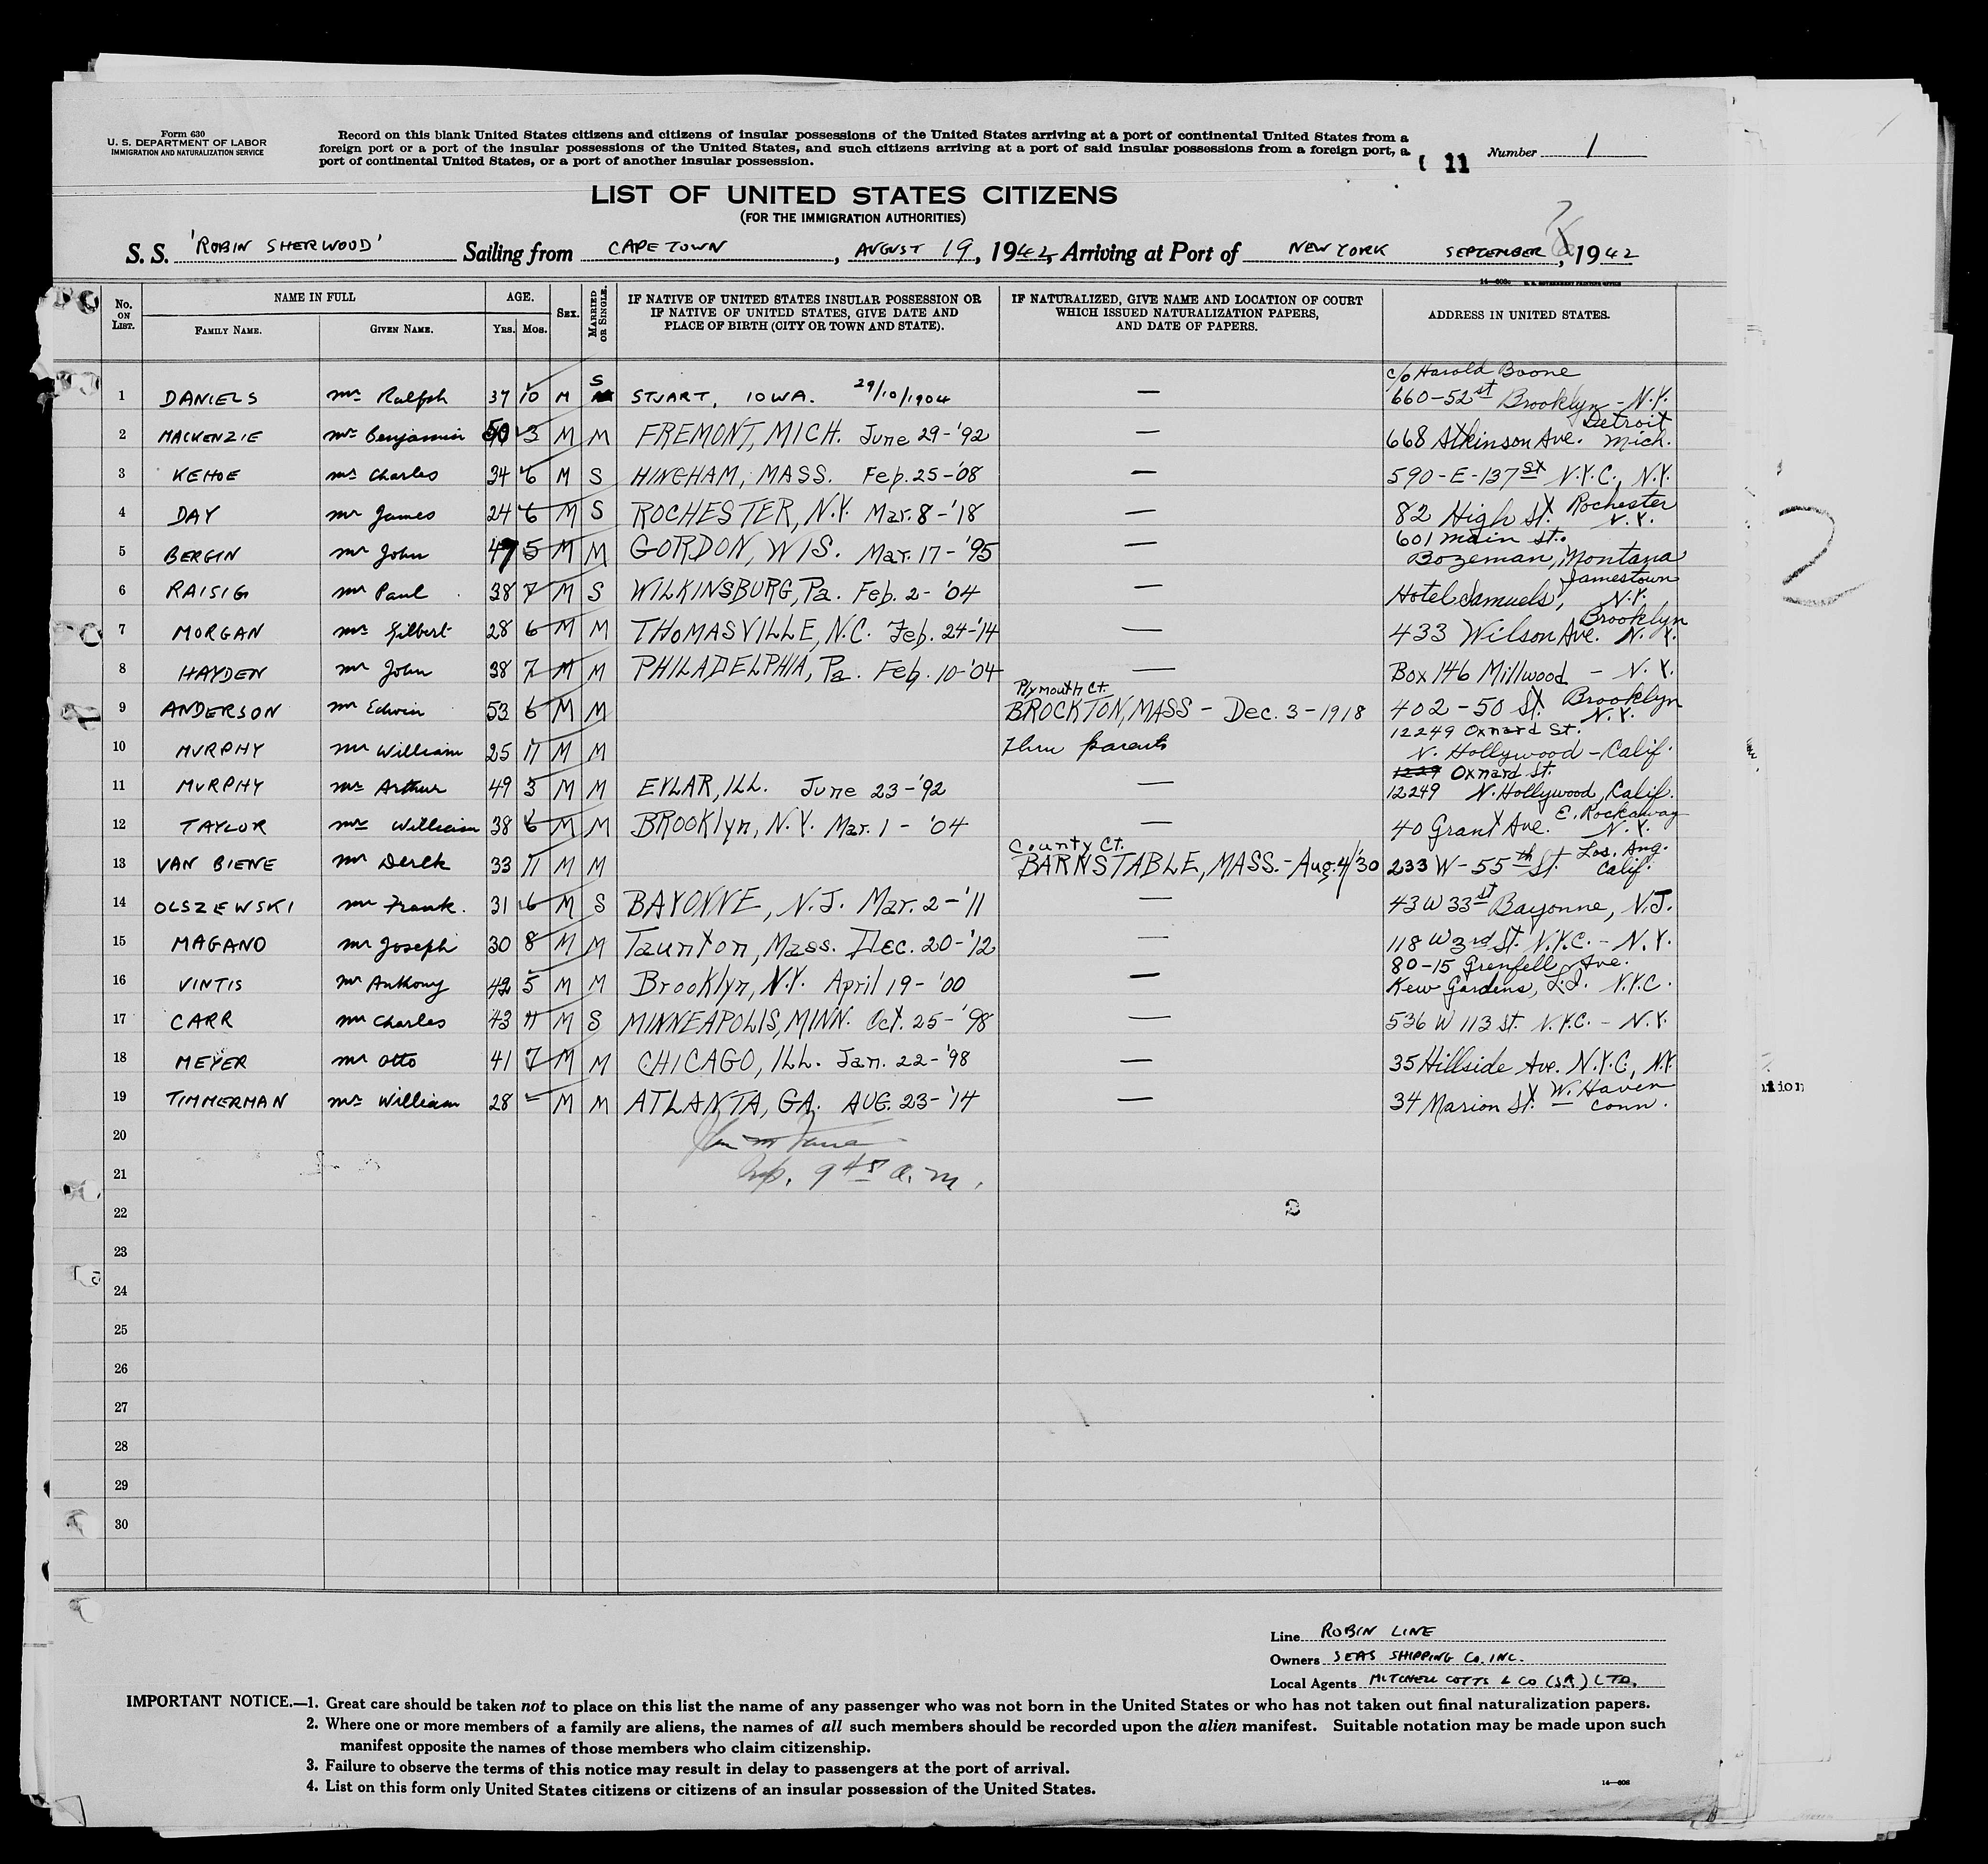 Form 630
U. S. DEPARTMENT OF LABOR
IMMIGRATION AND NATURALIZATION SERVICE
Record on this blank United States citizens and citizens of insular possessions of the United States arriving at a port of continental United States from a
foreign port or a port of the insular possessions of the United States, and such citizens arriving at a port of said insular possessions from a foreign port, a
port of continental United States, or a port of another insular possession.
11
Number 1
LIST OF UNITED STATES CITIZENS
(FOR THE IMMIGRATION AUTHORITIES)
S. S. 'ROBIN SHERWOOD' Sailing from CAPE TOWN, AUGUST 19, 1942, Arriving at Port of NEW YORK SEPTEMBER, 1942
No. ON LIST. NAME IN FULL AGE. SEX. MARRIED OR SINGLE. IF NATIVE OF UNITED STATES INSULAR POSSESSION OR IF NATIVE OF UNITED STATES, GIVE DATE AND PLACE OF BIRTH (CITY OR TOWN AND STATE). IF NATURALIZED, GIVE NAME AND LOCATION OF COURT WHICH ISSUED NATURALIZATION PAPERS, AND DATE OF PAPERS. ADDRESS IN UNITED STATES.
FAMILY NAME. GIVEN NAME. YRS. MOS.
1 DANIELS Mr Ralph 37 10 M S STUART, IOWA. 29/10/1904 — c/o Harold Boone 660-52st Brooklyn - N.Y.
2 MACKENZIE Mr Benjamin 50 3 M M FREMONT, MICH. June 29-'92 — 668 Atkinson Ave. Detroit Mich.
3 KEHOE Mr Charles 34 6 M S HINGHAM, MASS. Feb. 25-'08 — 590-E-137st N.Y.C., N.Y.
4 DAY Mr James 24 6 M S ROCHESTER, N.Y. Mar. 8-'18 — 82 High St. Rochester N.Y.
5 BERGIN Mr John 47 5 M M GORDON, WIS. Mar. 17-'95 — 601 Main St. Bozeman, Montana
6 RAISIG Mr Paul 38 7 M S WILKINSBURG, Pa. Feb. 2-'04 — Hotel Samuels, Jamestown N.Y.
7 MORGAN Mr Gilbert 28 6 M M THOMASVILLE, N.C. Feb. 24-'14 — 433 Wilson Ave. Brooklyn N.Y.
8 HAYDEN Mr John 38 7 M M PHILADELPHIA, Pa. Feb. 10-'04 — Box 146 Millwood - N.Y.
9 ANDERSON Mr Edwin 53 6 M M Plymouth Ct. BROCKTON, MASS - Dec. 3-1918 402-50 St. Brooklyn N.Y.
10 MURPHY Mr William 25 11 M M thru parents 12249 Oxnard St. N. Hollywood - Calif.
11 MURPHY Mr Arthur 49 3 M M EYLAR, ILL. June 23-'92 — 1229 Oxnard St. 12249 N. Hollywood, Calif.
12 TAYLOR Mr William 38 6 M M BROOKlyn, N.Y. Mar. 1-'04 — 40 Grant Ave. E. Rockaway N.Y.
13 VAN BIENE Mr Derek 33 11 M M County Ct. BARNSTABLE, MASS. - Aug. 4/'30 233 W-55th St. Los. Ang. Calif.
14 OLSZEWSKI Mr Frank. 31 6 M S BAYONNE, N.J. Mar. 2-'11 — 43 W 33st Bayonne, N.J.
15 MAGANO Mr Joseph 30 8 M M Taunton, Mass. Dec. 20-'12 — 118 W 3rd St. N.Y.C. - N.Y.
16 VINTIS Mr Anthony 42 5 M M Brooklyn, N.Y. April 19-'00 — 80-15 Grenfell Ave. Kew Gardens, L.I. N.Y.C.
17 CARR Mr Charles 43 11 M S MINNEAPOLIS, MINN. Oct. 25-'98 — 536 W 113 St. N.Y.C. - N.Y.
18 MEYER Mr Otto 41 7 M M CHICAGO, ILL. Jan. 22-'98 — 35 Hillside Ave. N.Y.C, N.Y.
19 TIMMERMAN Mr William 28 - M M ATLANTA, GA. AUG. 23-'14 — 34 Marion St. W. Haven Conn.
20
21 9 45 a.m.
22
23
24
25
26
27
28
29
30
2
Line ROBIN LINE
Owners SEAS SHIPPING Co. INC.
Local Agents MITCHELL COTTS & CO (S.A.) LTD.
IMPORTANT NOTICE.—1. Great care should be taken not to place on this list the name of any passenger who was not born in the United States or who has not taken out final naturalization papers.
2. Where one or more members of a family are aliens, the names of all such members should be recorded upon the alien manifest. Suitable notation may be made upon such
manifest opposite the names of those members who claim citizenship.
3. Failure to observe the terms of this notice may result in delay to passengers at the port of arrival.
4. List on this form only United States citizens or citizens of an insular possession of the United States.
14—608